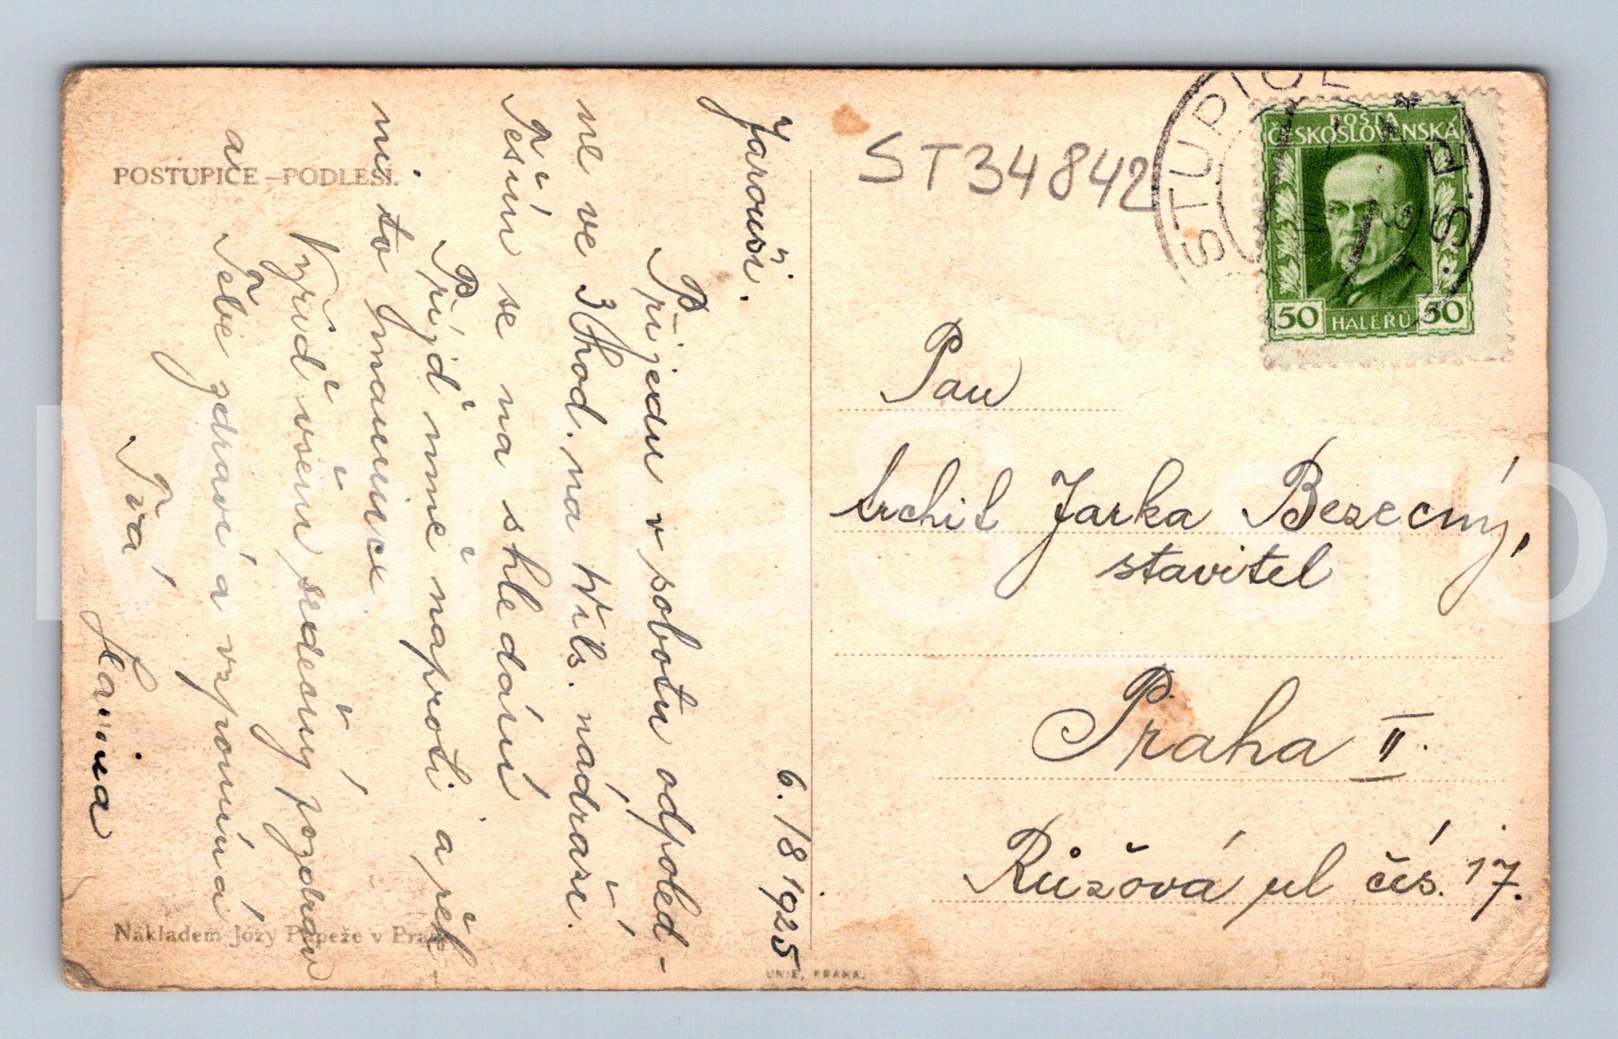 POSTUPICE – PODLESÍ.
6./8 1925
Jarouši.
Přijedu v sobotu odpoled-
ne ve 3 hod. na Wils. nádraží.
Těším se na shledání
Přijď mně naproti a řek-
ni to Smaunice
Vyřiď všem srdečný pozdrav
a Tebe zdraví a vzpomíná
Tvá
Nákladem Józy Papeže v Praze
UNIE, PRAHA.
ST34842
STUPICE
POŠTA
ČESKOSLOVENSKÁ
50 HALÉŘŮ 50
Pan
Archit Jarka Bezecný,
stavitel
Praha II.
Růžová ul čís. 17.